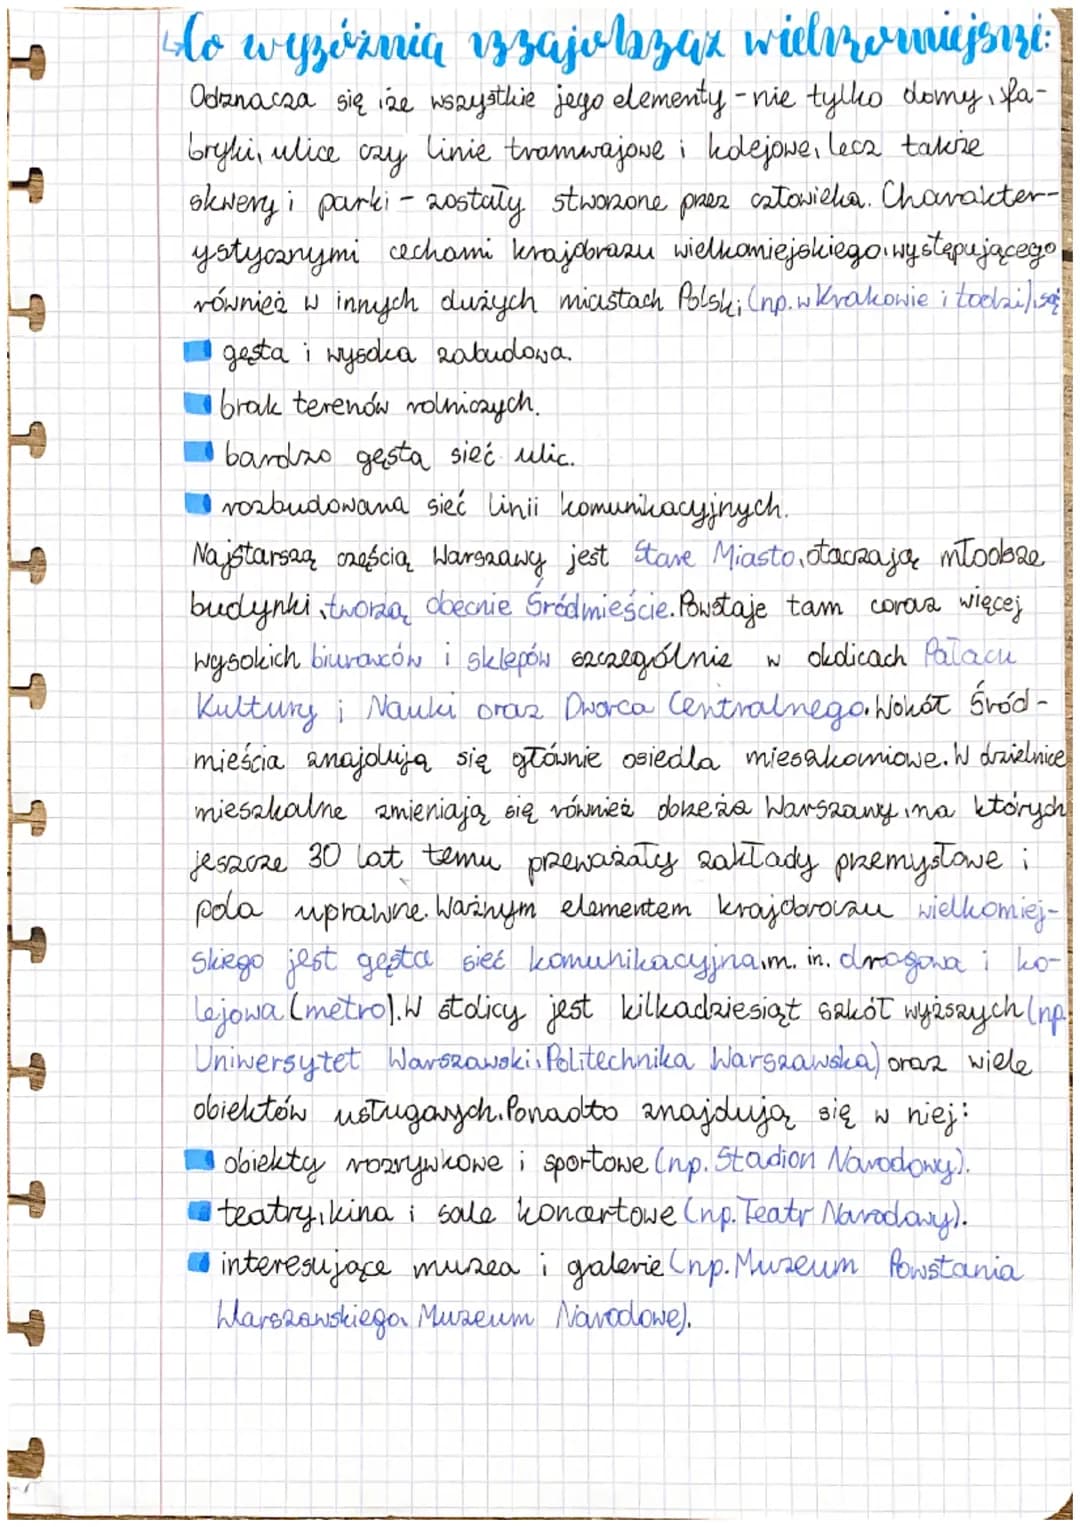 ↳Co wyróżnia krajobraz wielkomiejski:
Odznacza się że wszystkie jego elementy - nie tylko domy, fa-
bryki, ulice czy linie tramwajowe i kolejowe, lecz także
skwery i parki - zostały stworzone przez człowieka. Charakter-
ystycznymi cechami krajobrazu wielkomiejskiego, występującego
również w innych dużych miastach Polski (np. w Krakowie i Łodzi), są:
gęsta i wysoka zabudowa.
brak terenów rolniczych.
bardzo gęsta sieć ulic.
rozbudowana sieć linii komunikacyjnych.
Najstarszą częścią Warszawy jest Stare Miasto, otaczają młodsze
budynki, tworzą obecnie Śródmieście. Powstaje tam coraz więcej
wysokich biurowców i sklepów szczególnie w okolicach Pałacu
Kultury i Nauki oraz Dworca Centralnego. Wokół Śród-
mieścia znajdują się głównie osiedla mieszkaniowe. W dzielnice
mieszkalne zmieniają się również obrzeża Warszawy, na których
jeszcze 30 lat temu przeważały zakłady przemysłowe i
pola uprawne. Ważnym elementem krajobrazu wielkomiej-
skiego jest gęsta sieć komunikacyjna, m. in. drogowa i ko-
lejowa (metro). W stolicy jest kilkadziesiąt szkół wyższych (np.
Uniwersytet Warszawski, Politechnika Warszawska) oraz wiele
obiektów usługowych. Ponadto znajdują się w niej:
obiekty rozrywkowe i sportowe (np. Stadion Narodowy).
teatry, kina i sale koncertowe (np. Teatr Narodowy).
interesujące muzea i galerie (np. Muzeum Powstania
Warszawskiego, Muzeum Narodowe).